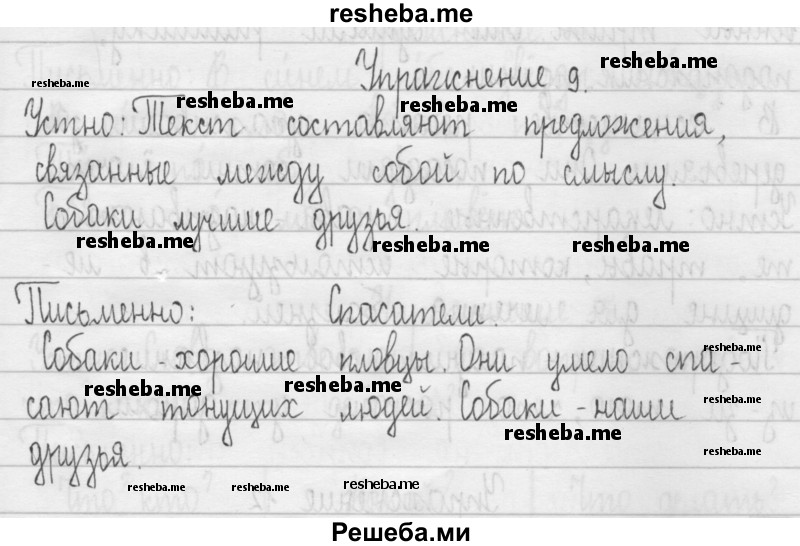 resheba.me
Упражнение 9.
resheba.me
resheba.me resheba.me resheba.me
Устно: Текст составляют предложения,
связанные между собой по смыслу.
Собаки лучшие друзья.
resheba.me resheba.me resheba.me
Письменно: Спасатели.
resheba.me
Собаки - хорошие пловцы. Они умело спа-
resheba.me resheba.me
сают тонущих людей. Собаки - наши
resheba.me resheba.me
друзья.
resheba.me resheba.me resheba.me
Решеба.ми